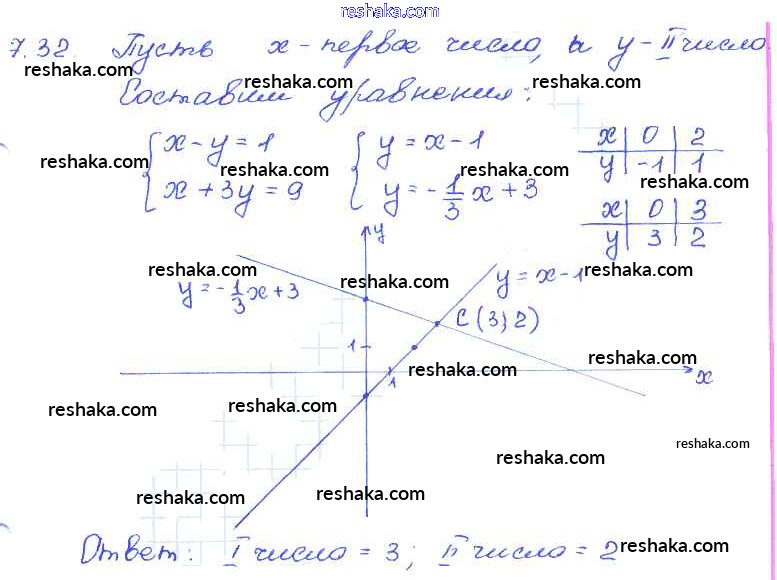 reshaka.com
7.32. Пусть x - первое число, а y - II число.
reshaka.com reshaka.com reshaka.com
Составим уравнения:
{ x - y = 1 { y = x - 1 x | 0 | 2
reshaka.com reshaka.com y | -1 | 1
{ x + 3y = 9 { y = -1/3 x + 3 reshaka.com
x | 0 | 3
y | 3 | 2
y
reshaka.com reshaka.com y = x - 1 reshaka.com
y = -1/3 x + 3
C (3; 2)
1
reshaka.com reshaka.com
1 x
reshaka.com reshaka.com
reshaka.com
reshaka.com
reshaka.com reshaka.com
Ответ: I число = 3; II число = 2
reshaka.com